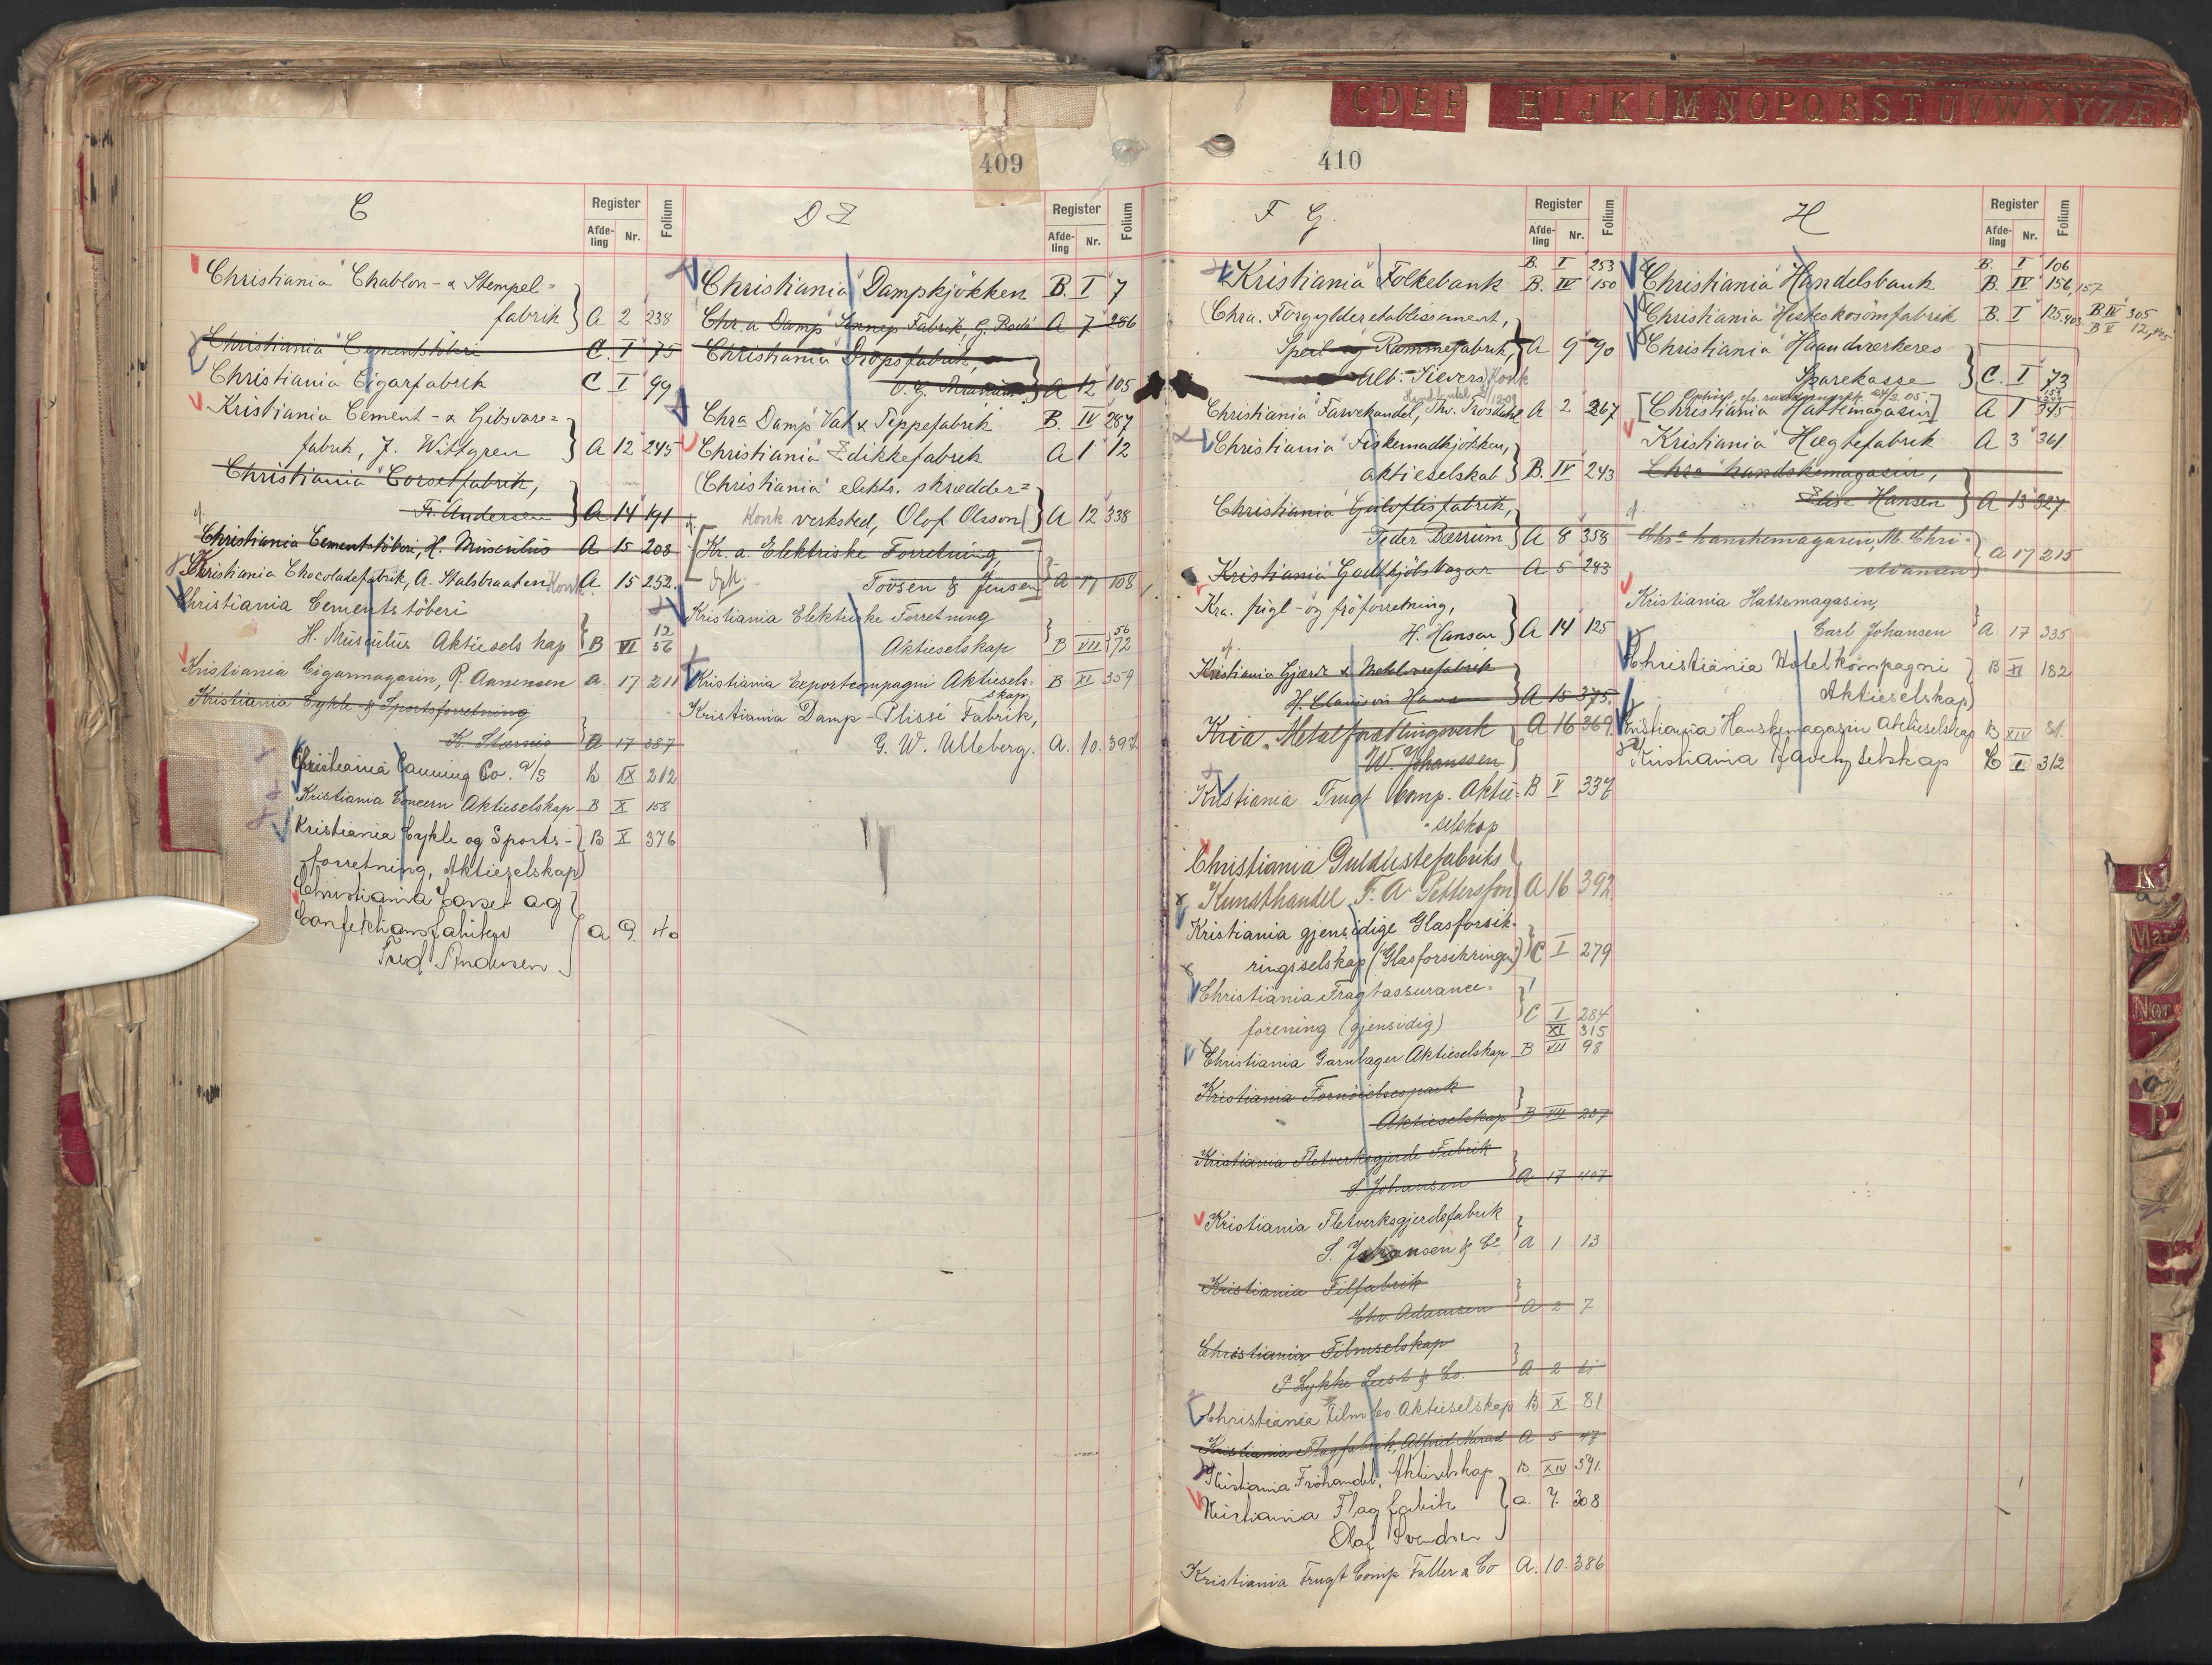 409
C
Register
Afde-
ling
Nr.
Folium
"Christiania" Chablon- & Stempel=
fabrik } A 2 238
"Christiania" Cementstöberi C. I 75
"Christiania" Cigarfabrik C I 99
"Kristiania Cement- & Gibsvare=
fabrik, J. Wittgren } A 12 245
"Christiania" Corsetfabrik,
Fr. Andersen } A 14 191
Christiania Cementstöberi, H. Musculus A 15 208
Kristiania Chocoladefabrik, A. Stalsbraaten Konk. A. 15 252.
Christiania Cementstöberi 12
H. Musculus Aktieselskap } B VI 56
Kristiania Cigarmagasin, R. Aanensen A. 17 211
Kristiania Cykle & Sportsforretning
K. Stærnes } A 17 387
Christiania Canning Co. A/S B IX 212
Kristiania Concern Aktieselskap B X 158
Kristiania Cykle og Sports- } B X 376
forretning, Aktieselskap
Christiania Corset og
Confektionsfabriker } A 9. 40
Fred Andersen
D E
Register
Afde-
ling
Nr.
Folium
"Christiania" Dampkjökken B. I 7
Chr.a Damp Sennep Fabrik, G. Rode A 7 286
Christiania Dropsfabrik,
A 12 105
"Chra Damp" Vat & Teppefabrik B. IV 287
"Christiania" Edikkefabrik A 1 12
(Christiania" elektr. skrædder=
Konk. verksted, Olof Olsson) } A 12 338
[Kr.a Elektriske Forretning,
Oph. Tovsen & Jensen] } A 17 108
Kristiania Elektriske Forretning 56
Aktieselskap } B VII 72
Kristiania Exportcompagni Aktiesels- B XI 359
skap
Kristiania Damp-Plissé Fabrik,
G. W. Ulleberg. A. 10. 397
410
C D E F H I J K L M N O P Q R S T U V W X Y Z Æ
F G.
Register
Afde-
ling
Nr.
Folium
B. I 253
"Kristiania" Folkebank B. IV 150
(Chra. Forgylderetablissement,
Speil og Rammefabrik, } A 9 90
Alb. Sievers) Konk
Christiania Farvehandel, Thv. Trosdahl A 2 267
"Christiania" Fiskemadkjökken,
Aktieselskab } B. IV 243
Christiania Gulvflisfabrik,
Peder Bærrum } A 8 358
"Kristiania" Godtkjöbsbazar A 5 283
Kra. fugl- og fröforretning,
H. Hansen } A 14 125
Kristiania Gjærde & Mobelvarefabrik
A 15 375.
Kria. Metalforædlingsverk } A 16 369.
W. Johanssen
Kristiania Frugt Comp. Aktie- B V 337
selskap
Christiania Guldlistefabriks
Kunsthandel F. A. Petterssson } A 16 392.
Kristiania gjensidige Glasforsik-
ringsselskap (Glasforsikringen) } C I 279
Christiania Fragtassurance-
forening (gjensidig) } C I 284
XI 315
Christiania Garnlager Aktieselskap B VII 98
Kristiania Fornöielsespark
Aktieselskap } B VII 237
Kristiania Fletverksgjerde Fabrik
S. Johansen } A 17 407
Kristiania Fletverksgjerdefabrik
S. Johansen & Co } A 1 13
Kristiania Filfabrik
Chr. Adamsen } A 2 7
Christiania Filmselskap
A 2
Christiania Film Co. Aktieselskap B X 81
Kristiania Flagfabrik, A 5 47
Kristiania Fröhandel, Aktieselskap B. XIV 591.
Kristiania Flagfabrik } A. 7. 308
Olaf Svendsen
Kristiania Frugt Comp. Faller & Co A. 10. 386
H
Register
Afde-
ling
Nr.
Folium
B. I 106
"Christiania" Handelsbank B. IV 156, 157
"Christiania" Hesteskosömfabrik B. I 125.403 B IV 305
B V 12,
"Christiania" Haandværkeres
Sparekasse } C. I 73
[Christiania Hattemagasin] A 1 345
"Kristiania" Hægtefabrik A 3 361
Chra handskemagasin,
Elise Hansen } A 13 327
Chra hanskemagasin, M. Chri-
stiansen } A 17 215
Kristiania Hattemagasin,
Carl Johansen } A 17 335
Christiania Hotelkompagni } B XI 182
Aktieselskap
Kristiania Hanskemagasin Aktieselskap B XIV 81.
Kristiania Haveby selskap C I 312
K
Nor
O
P